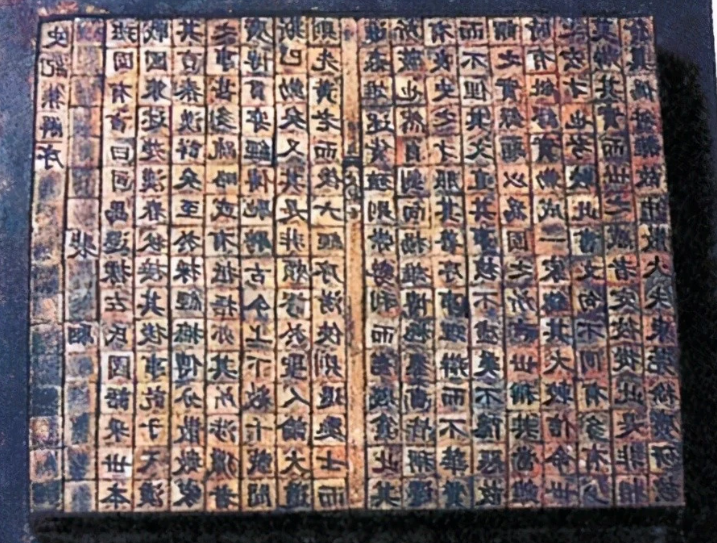 史記集解序
裴駰
班固有言曰司馬遷據左氏國語采世本
戰國策述楚漢春秋接其後事訖于天漢
其言秦漢詳矣至於採經摭傳分散數家
之事甚多疏略或有抵捂亦其所涉獵者
廣博貫穿經傳馳騁古今上下數千載間
斯已勤矣又其是非頗謬於聖人論大道
則先黃老而後六經序游俠則退處士而
進姦雄述貨殖則崇勢利而羞貧賤此其
所蔽也然自劉向揚雄博極羣書皆稱遷
有良史之才服其善序事理辯而不華質
而不俚其文直其事核不虛美不隱惡故
謂之實錄駰以為固之所言世稱其當雖
時有紕繆實勒成一家總其大較信命世
之宏才也考較此書文句不同有多有少
莫辯其實而世之惑者定彼從此是非相
貿真偽舛雜故中散大夫東莞徐廣研核